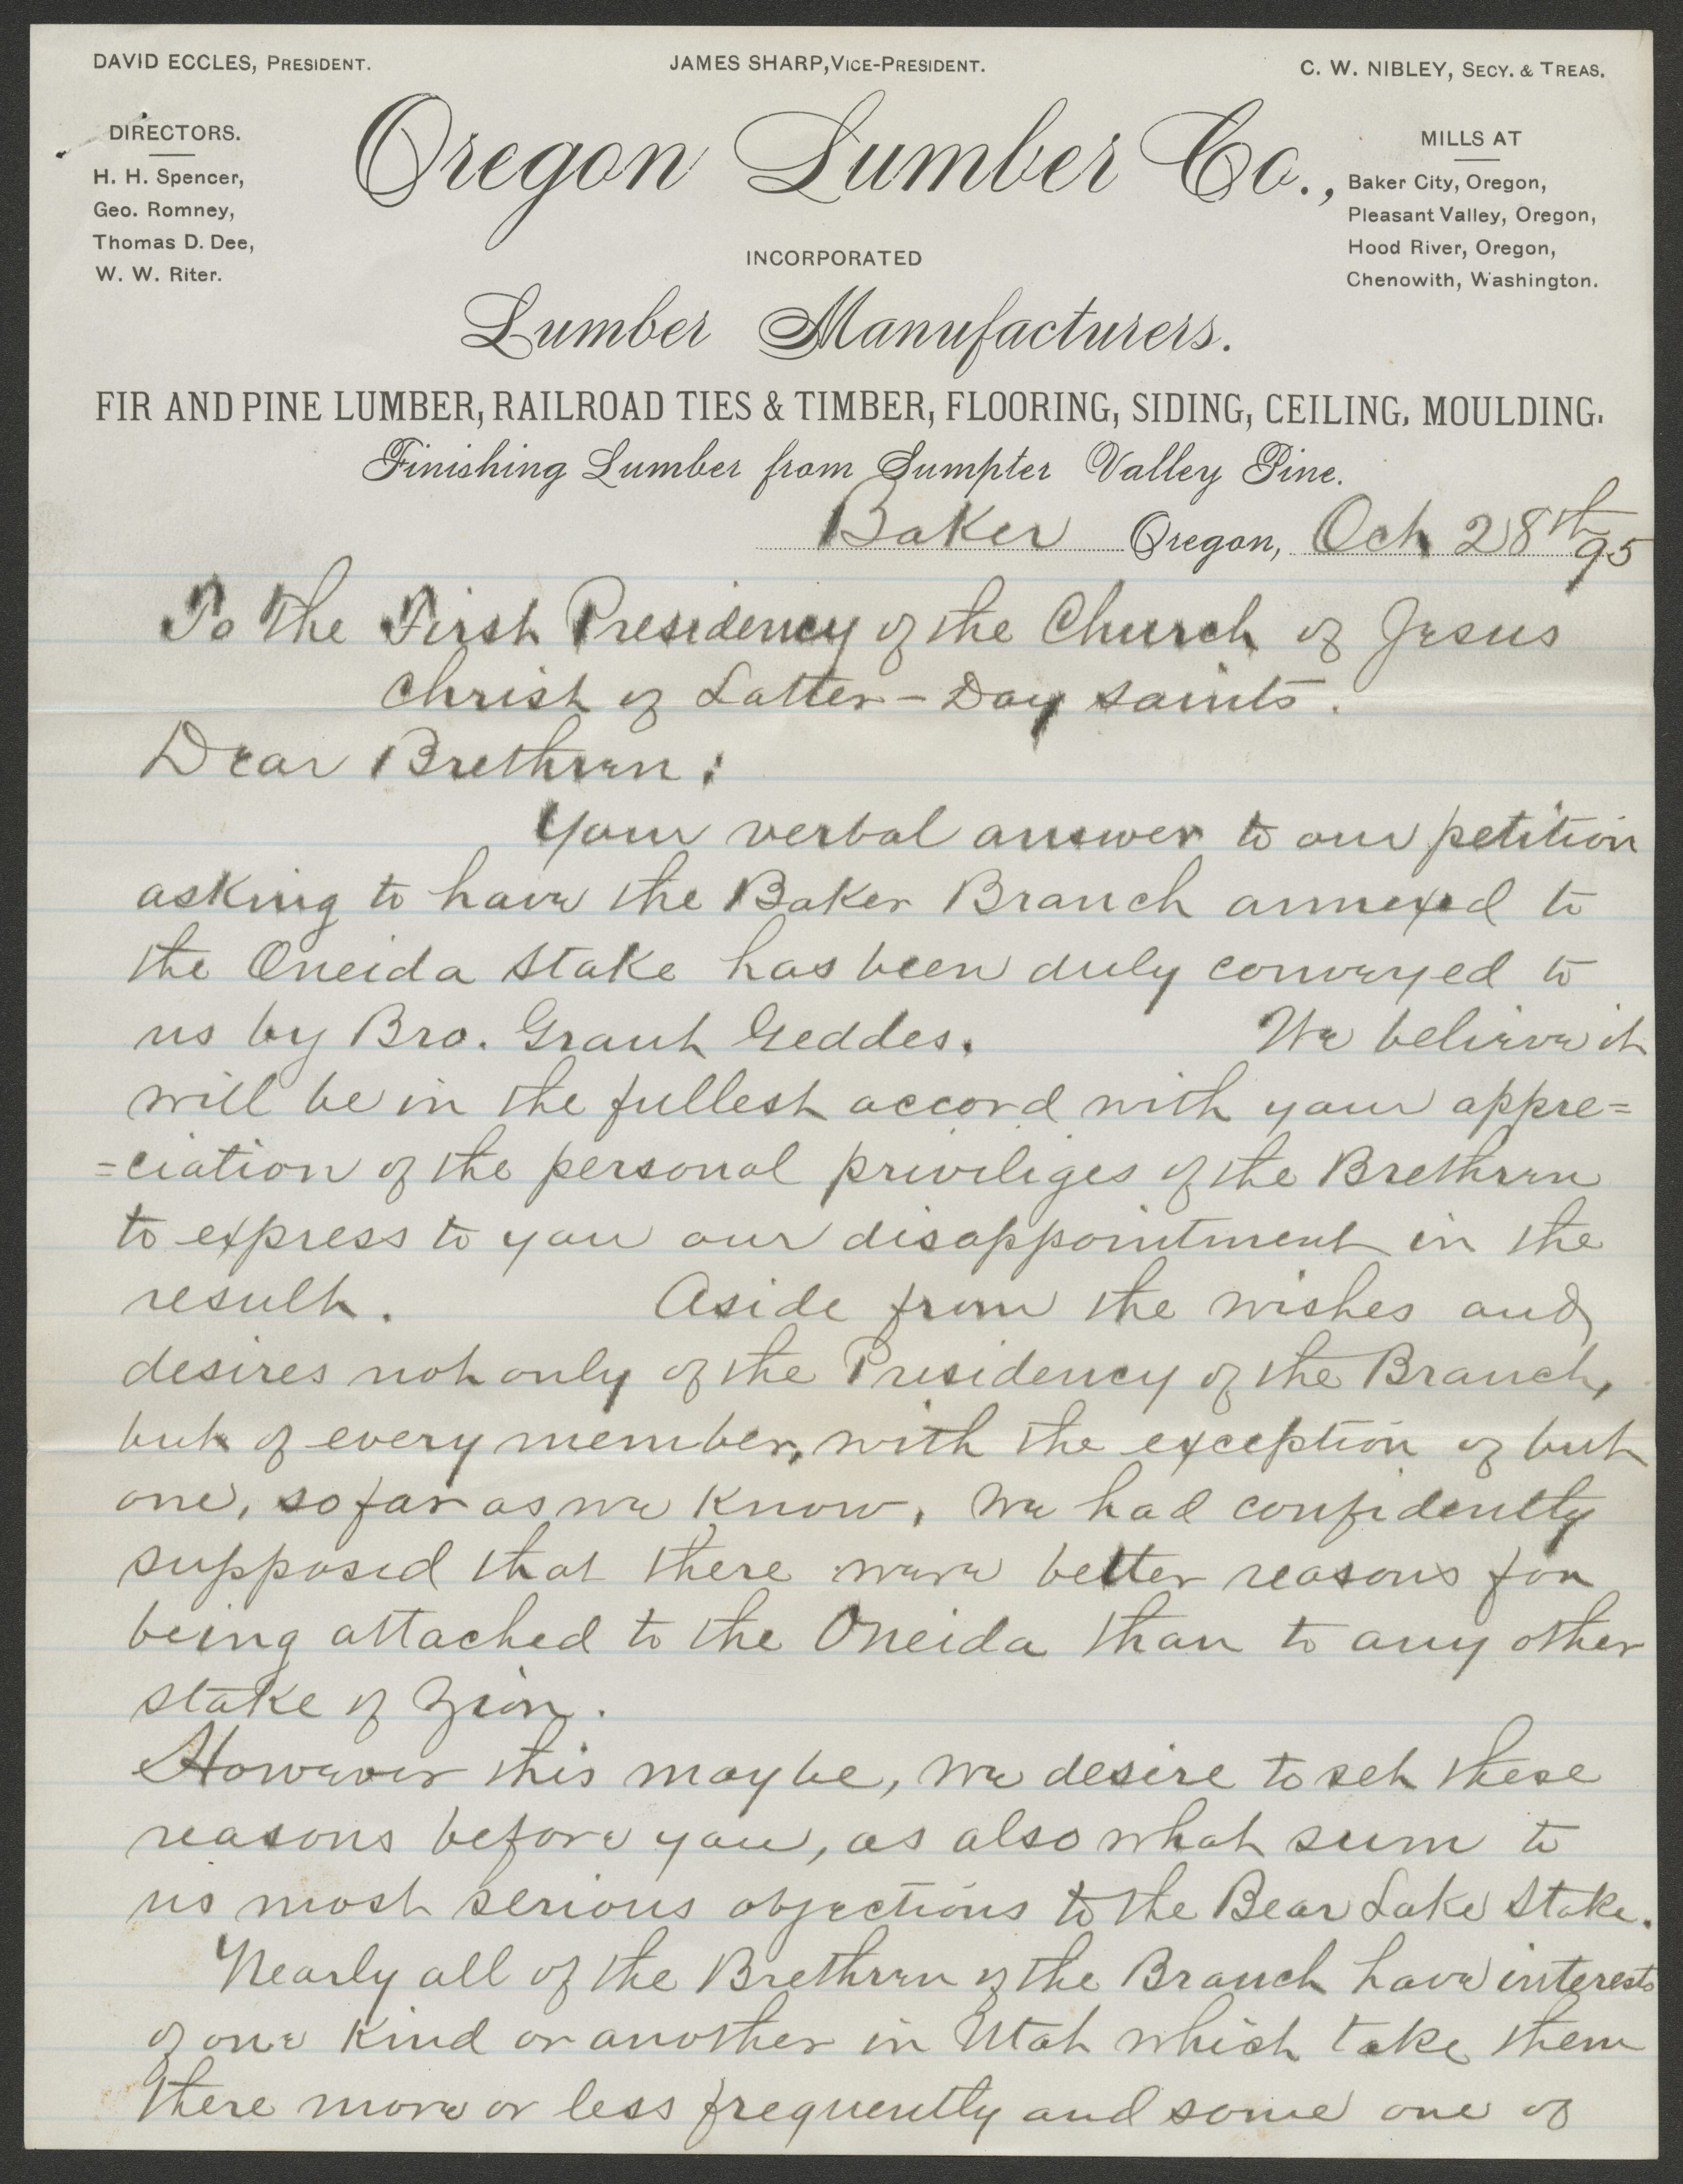 DAVID ECCLES, PRESIDENT.
JAMES SHARP, VICE-PRESIDENT.
C. W. NIBLEY, SECY. & TREAS.
DIRECTORS.
H. H. Spencer,
Geo. Romney,
Thomas D. Dee,
W. W. Riter.
Oregon Lumber Co.,
MILLS AT
Baker City, Oregon,
Pleasant Valley, Oregon,
Hood River, Oregon,
Chenowith, Washington.
INCORPORATED
Lumber Manufacturers.
FIR AND PINE LUMBER, RAILROAD TIES & TIMBER, FLOORING, SIDING, CEILING, MOULDING.
Finishing Lumber from Sumpter Valley Pine.
Baker Oregon, Oct 28th 95
To the First Presidency of the Church of Jesus
Christ of Latter-Day saints.
Dear Brethren:
Your verbal answer to our petition
asking to have the Baker Branch annexed to
the Oneida Stake has been duly conveyed to
us by Bro. Grant Geddes. We believe it
will be in the fullest accord with your appre=
=ciation of the personal priviliges of the Brethren
to express to you our disappointment in the
result. Aside from the wishes and
desires not only of the Presidency of the Branch,
but of every member, with the exception of but
one, so far as we know, we had confidently
supposed that there were better reasons for
being attached to the Oneida than to any other
stake of Zion.
However this may be, we desire to set these
reasons before you, as also what seem to
us most serious objections to the Bear Lake Stake.
Nearly all of the Brethren of the Branch have interests
of one kind or another in Utah which take them
there more or less frequently and some one of